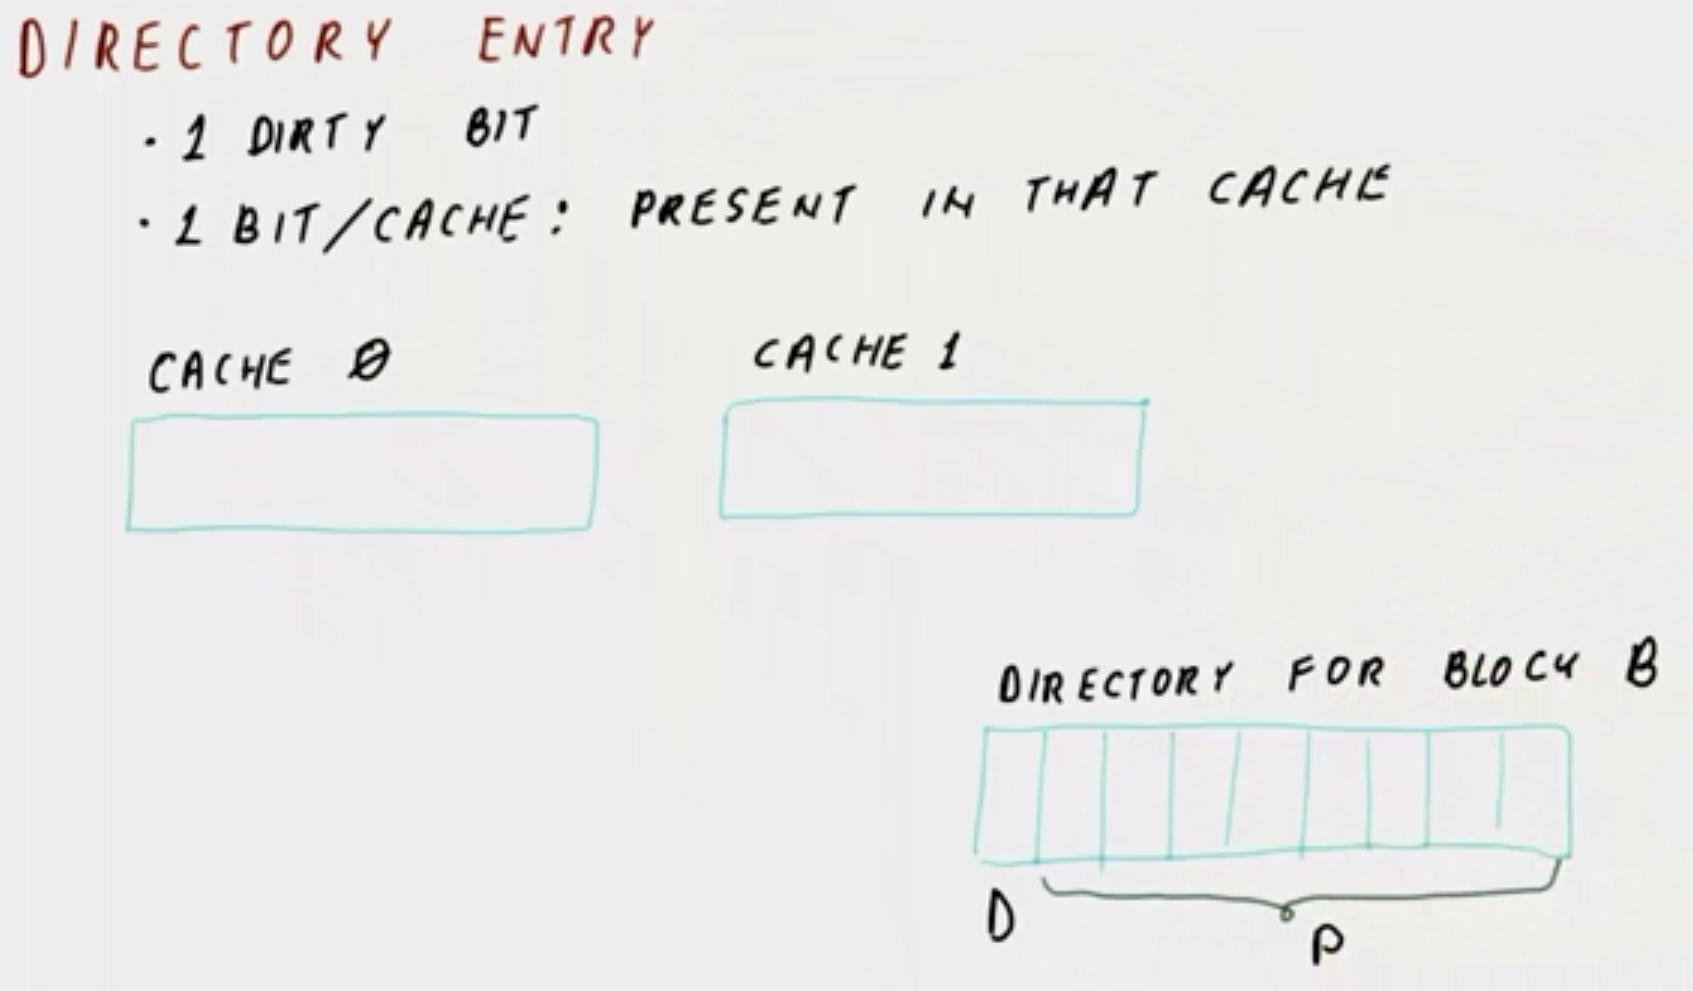 DIRECTORY ENTRY
· 1 DIRTY BIT
· 1 BIT/CACHE: PRESENT IN THAT CACHE
CACHE 0
CACHE 1
DIRECTORY FOR BLOCK B
D
P